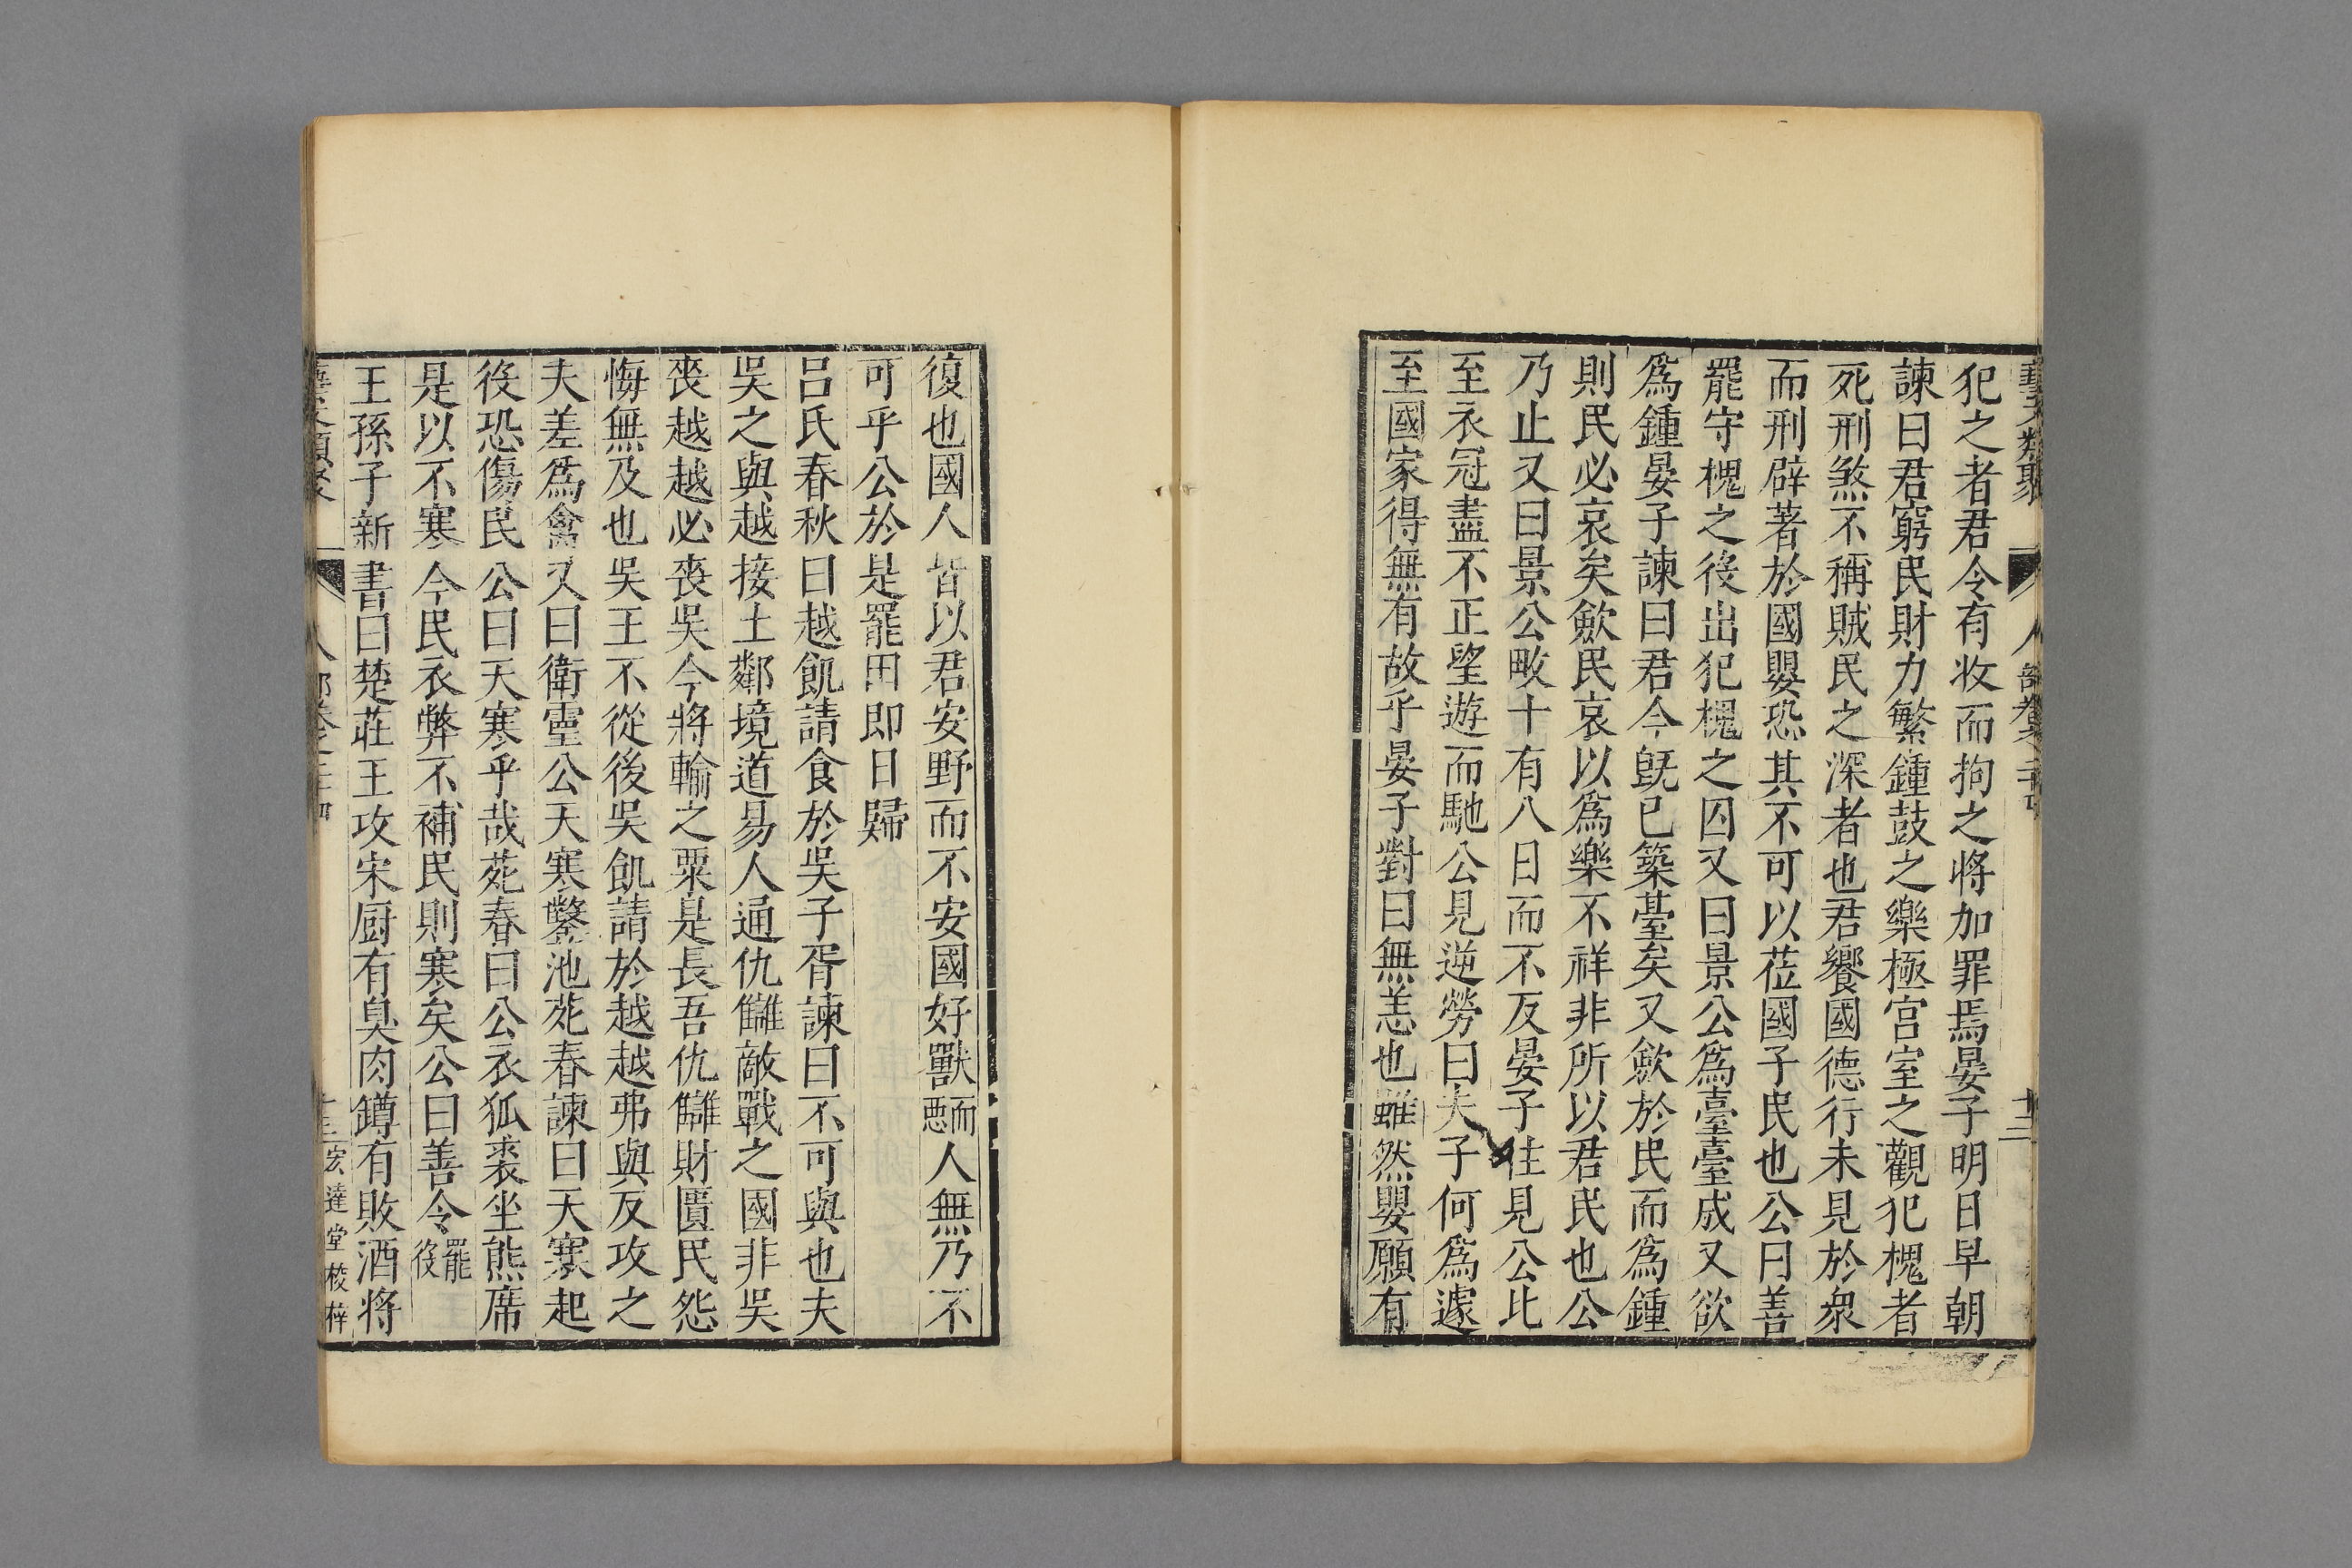 藝文類聚 人部卷之二十四 十二
犯之者君令有收而拘之将加罪焉晏子明日早朝
諫曰君窮民財力繁鍾鼓之樂極宫室之觀犯槐者
死刑煞不稱賊民之深者也君饗國德行未見於衆
而刑辟著於國嬰恐其不可以莅國子民也公曰善
罷守槐之役出犯槐之囚又曰景公爲臺臺成又欲
爲鍾晏子諫曰君今旣已築臺矣又歛於民而爲鍾
則民必哀矣歛民哀以爲樂不祥非所以君民也公
乃止又曰景公畋十有八日而不反晏子往見公比
至衣冠盡不正望遊而馳公見逆勞曰夫子何爲遽
至國家得無有故乎晏子對曰無恙也雖然嬰願有
復也國人皆以君安野而不安國好獸而惡人無乃不
可乎公於是罷田即日歸
吕氏春秋曰越飢請食於吳子胥諫曰不可與也夫
吳之與越接土鄰境道易人通仇讎敵戰之國非吳
喪越越必喪吳今將輸之粟是長吾仇讎財匱民怨
悔無及也吳王不從後吳飢請於越越弗與反攻之
夫差爲禽又曰衛靈公天寒鑿池苑春諫曰天寒起
役恐傷民公曰天寒乎哉苑春曰公衣狐裘坐熊席
是以不寒今民衣弊不補民則寒矣公曰善令罷役
王孫子新書曰楚莊王攻宋厨有臭肉罇有敗酒将
藝文類聚 人部卷之二十四 十三 宏達堂校梓